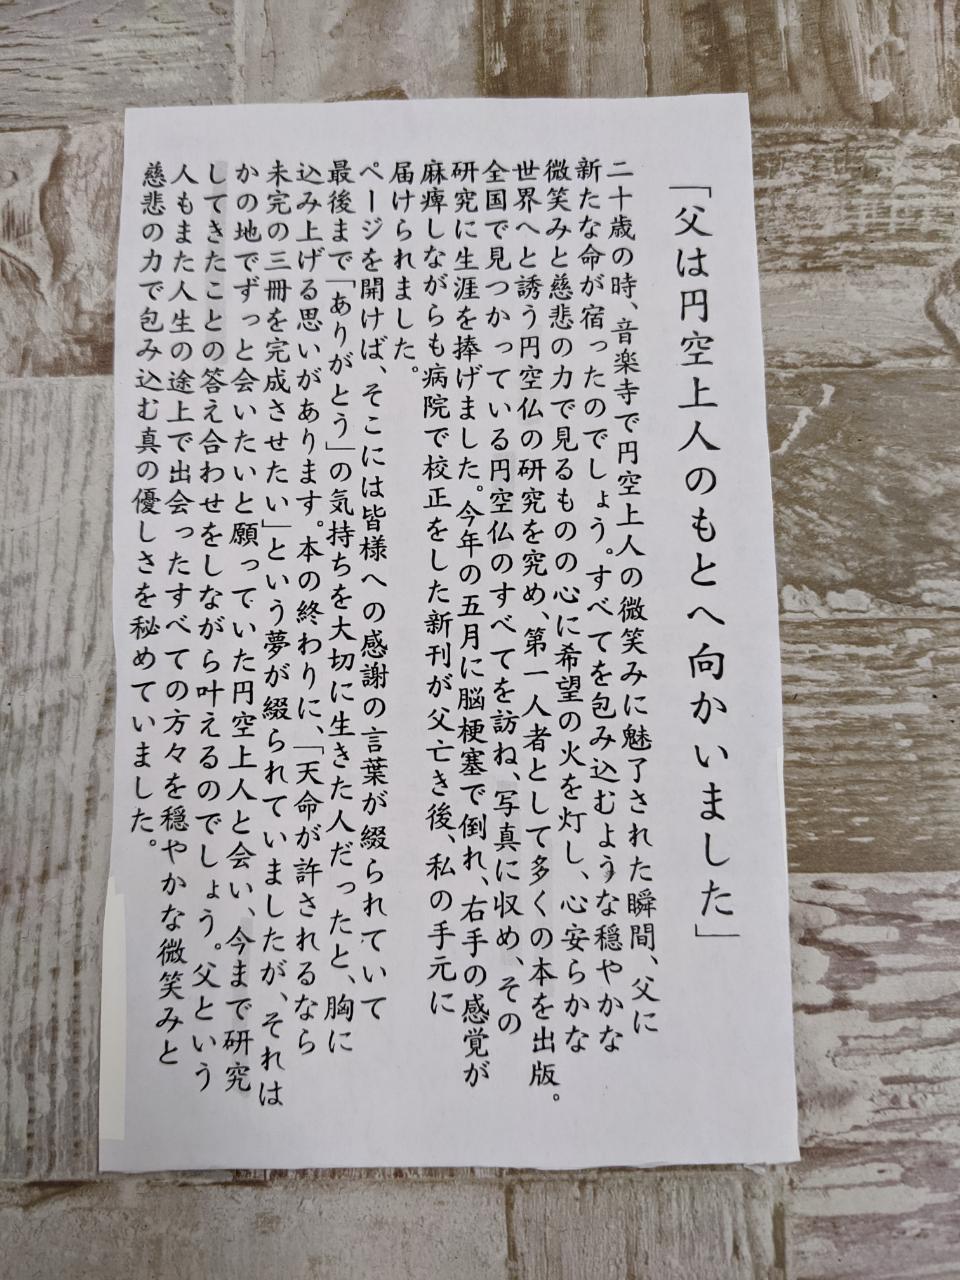 「父は円空上人のもとへ向かいました」
二十歳の時、音楽寺で円空上人の微笑みに魅了された瞬間、父に
新たな命が宿ったのでしょう。すべてを包み込むような穏やかな
微笑みと慈悲の力で見るものの心に希望の火を灯し、心安らかな
世界へと誘う円空仏の研究を究め、第一人者として多くの本を出版。
全国で見つかっている円空仏のすべてを訪ね、写真に収め、その
研究に生涯を捧げました。今年の五月に脳梗塞で倒れ、右手の感覚が
麻痺しながらも病院で校正をした新刊が父亡き後、私の手元に
届けられました。
ページを開けば、そこには皆様への感謝の言葉が綴られていて
最後まで「ありがとう」の気持ちを大切に生きた人だったと、胸に
込み上げる思いがあります。本の終わりに、「天命が許されるなら
未完の三冊を完成させたい」という夢が綴られていましたが、それは
かの地でずっと会いたいと願っていた円空上人と会い、今まで研究
してきたことの答え合わせをしながら叶えるのでしょう。父という
人もまた人生の途上で出会ったすべての方々を穏やかな微笑みと
慈悲の力で包み込む真の優しさを秘めていました。